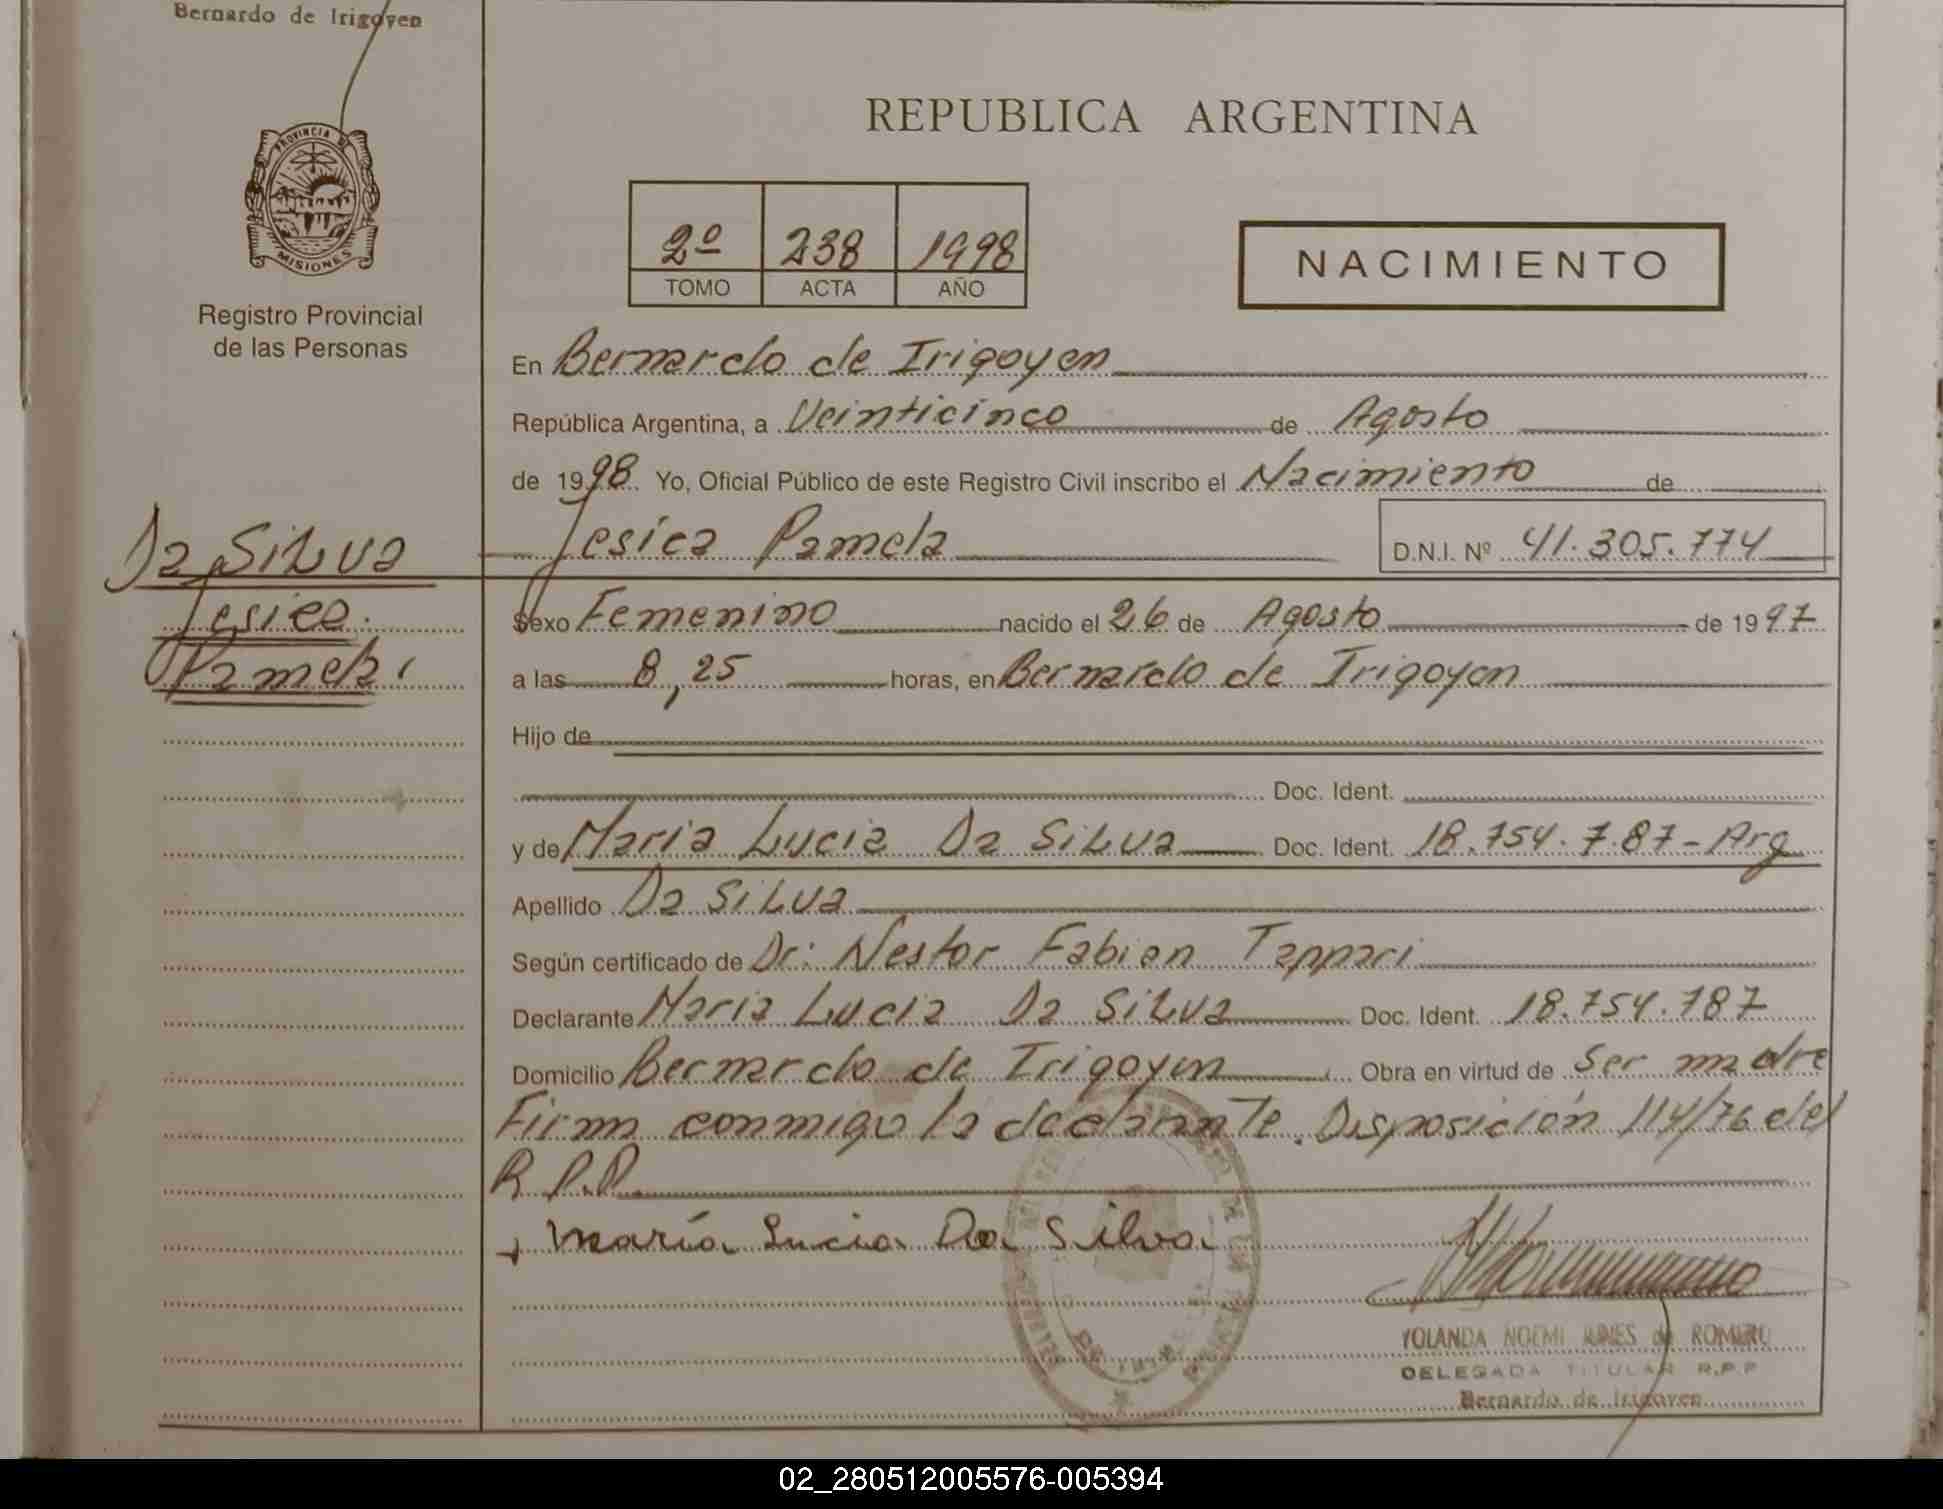 Bernardo de Irigoyen
PROVINCIA DE
MISIONES
Registro Provincial
de las Personas
Da Silva
Jesica
Pamela
REPUBLICA ARGENTINA
2º 238 1998
TOMO ACTA AÑO
NACIMIENTO
En Bernardo de Irigoyen
República Argentina, a Veinticinco de Agosto
de 1998 Yo, Oficial Público de este Registro Civil inscribo el Nacimiento de
Jesica Pamela D.N.I. Nº 41.305.774
Sexo Femenino nacido el 26 de Agosto de 1997
a las 8,25 horas, en Bernardo de Irigoyen
Hijo de
Doc. Ident.
y de Maria Lucia Da Silva Doc. Ident. 18.754.787-Arg
Apellido Da Silva
Según certificado de Dr: Nestor Fabian Tappari
Declarante Maria Lucia Da Silva Doc. Ident. 18.754.787
Domicilio Bernardo de Irigoyen Obra en virtud de Ser madre
Firma conmigo la declarante. Disposición 114/76 del
R.P.P.
María Lucia Da Silva
YOLANDA NOEMI de ROMERO
DELEGADA TITULAR R.P.P
Bernardo de Irigoyen
02_280512005576-005394